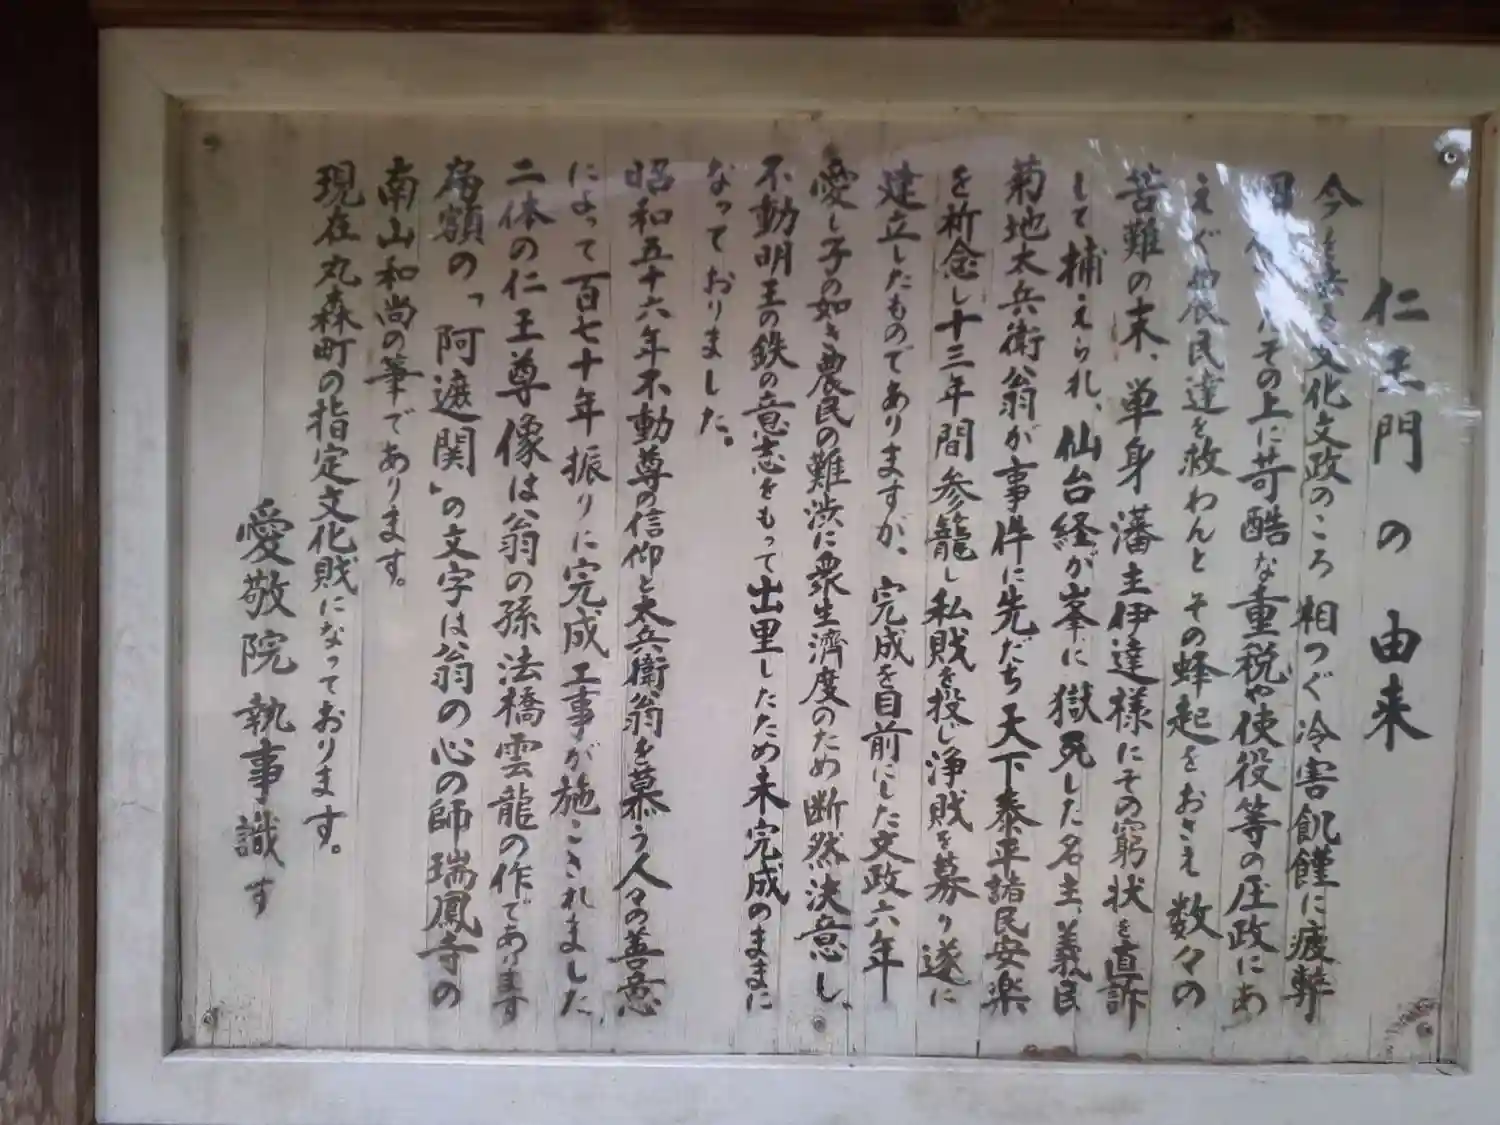 仁王門の由来
今を去る文化文政のころ相つぐ冷害飢饉に疲弊
その上に苛酷な重税や使役等の圧政にあ
えぐ農民達を救わんとその蜂起をおさえ数々の
苦難の末、単身藩主伊達様にその窮状を直訴
して捕えられ、仙台経が峯に獄死した名主、義民
菊地太兵衛翁が事件に先だち天下泰平諸民安楽
を祈念し十三年間参籠し私財を投じ浄財を募り遂に
建立したものでありますが、完成を目前にした文政六年
愛し子の如き農民の難渋に衆生濟度のため断然決意し、
不動明王の鉄の意志をもって出里したため未完成のままに
なっておりました。
昭和五十六年不動尊の信仰と太兵衛翁を慕う人々の善意
によって百七十年振りに完成工事が施こされました。
二体の仁王尊像は翁の孫法橋雲龍の作であります
扁額の「阿遮関」の文字は翁の心の師瑞鳳寺の
南山和尚の筆であります。
現在丸森町の指定文化財になっております。
愛敬院執事識す